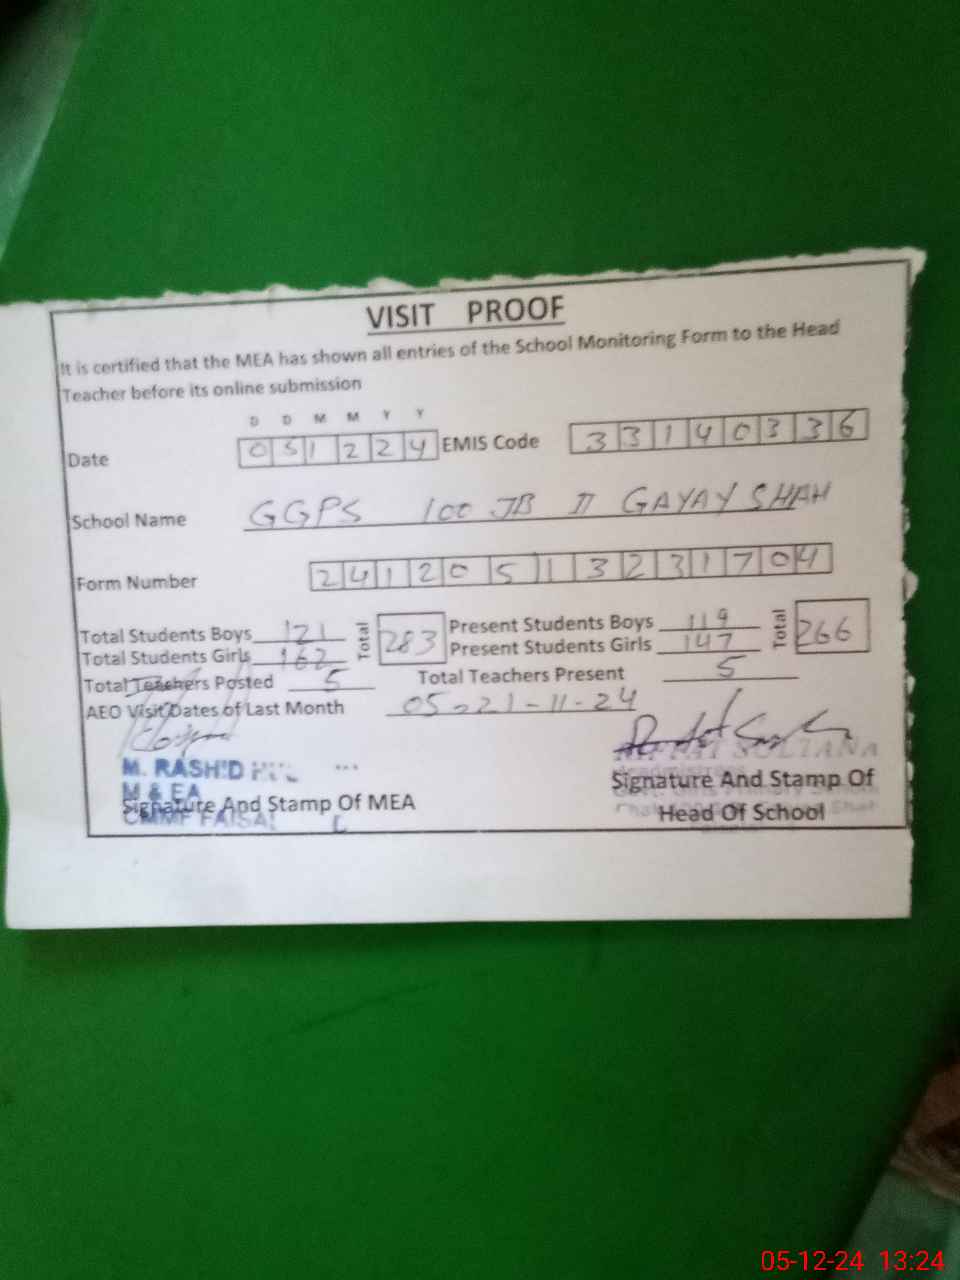 VISIT PROOF
It is certified that the MEA has shown all entries of the School Monitoring Form to the Head
Teacher before its online submission
D D M M Y Y
Date 051224 EMIS Code 33140336
School Name GGPS 100 JB II GAYAY SHAH
Form Number 24120513231704
Total Students Boys 121 Total 283 Present Students Boys 119 Total 266
Total Students Girls 162 Present Students Girls 147
Total Teachers Posted 5 Total Teachers Present 5
AEO Visit Dates of Last Month 05-21-11-24
M. RASHID SULTANA
M & EA Signature And Stamp Of
Signature And Stamp Of MEA
CMMF FAISAL Head Of School
05-12-24 13:24